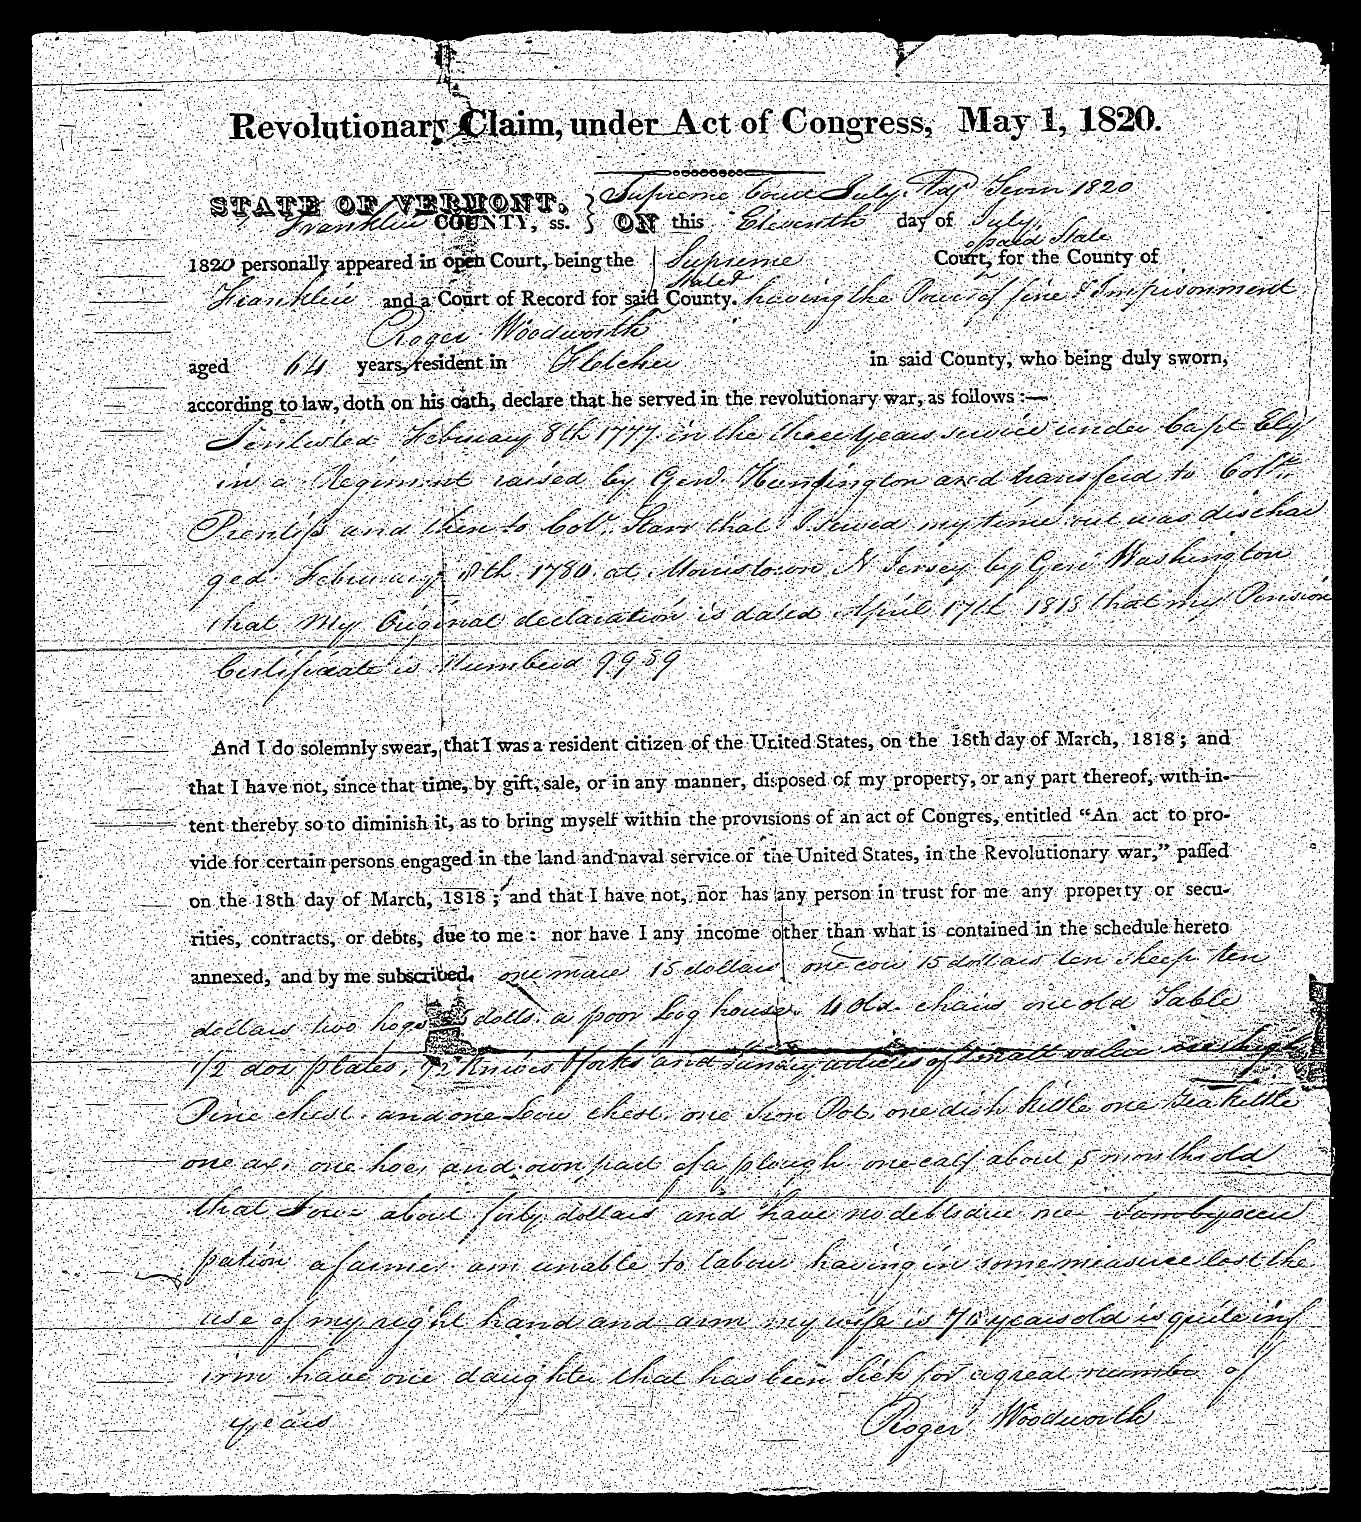 Revolutionary Claim, under Act of Congress, May 1, 1820.
Supreme Court July Adjd Term 1820
STATE OF VERMONT,
Franklin COUNTY, ss. } ON this Eleventh day of July,
of said State
1820 personally appeared in open Court, being the Supreme Court, for the County of
State &
Franklin and a Court of Record for said County. having the Power of fine & Imprisonment
Roger Woodworth
aged 64 years, resident in Fletcher in said County, who being duly sworn,
according to law, doth on his oath, declare that he served in the revolutionary war, as follows :—
I enlisted February 8th 1777 in the three years service under Capt Ely
in a Regiment raised by Genl. Huntington and transferd to Coll.
Prentiss and then to Col. Starr that I served my time out was dischar
ged February 8th 1780 at Morristown N Jersey by Genl Washington
that My Original declaration is dated April 17th 1818 that my Pension
Certificate is Numberd 9989
And I do solemnly swear, that I was a resident citizen of the United States, on the 18th day of March, 1818 ; and
that I have not, since that time, by gift, sale, or in any manner, disposed of my property, or any part thereof, with in-
tent thereby so to diminish it, as to bring myself within the provisions of an act of Congres, entitled “An act to pro-
vide for certain persons engaged in the land and naval service of the United States, in the Revolutionary war,” passed
on the 18th day of March, 1818 ; and that I have not, nor has any person in trust for me any property or secu-
rities, contracts, or debts, due to me : nor have I any income other than what is contained in the schedule hereto
annexed, and by me subscribed. one mare 15 dollars one cow 15 dollars ten sheep ten
dollars two hogs 5 dolls. a poor Log house. 4 Old chairs one old Table
1/2 doz plates, 1/2 Knives & forks and sundry articles of small value
Pine chest. and one Low chest. one Iron Pot, one dish kittle one Teakittle
one ax, one hoe, and own part of a plough one calf about 5 months old
that I owe about forty dollars and have no debts due me I am by occu
pation a farmer am unable to labour having in some measure lost the
use of my right hand and arm my wife is years old is quite inf
irm have one daughter that has been Sick for a great number of
years Roger Woodworth